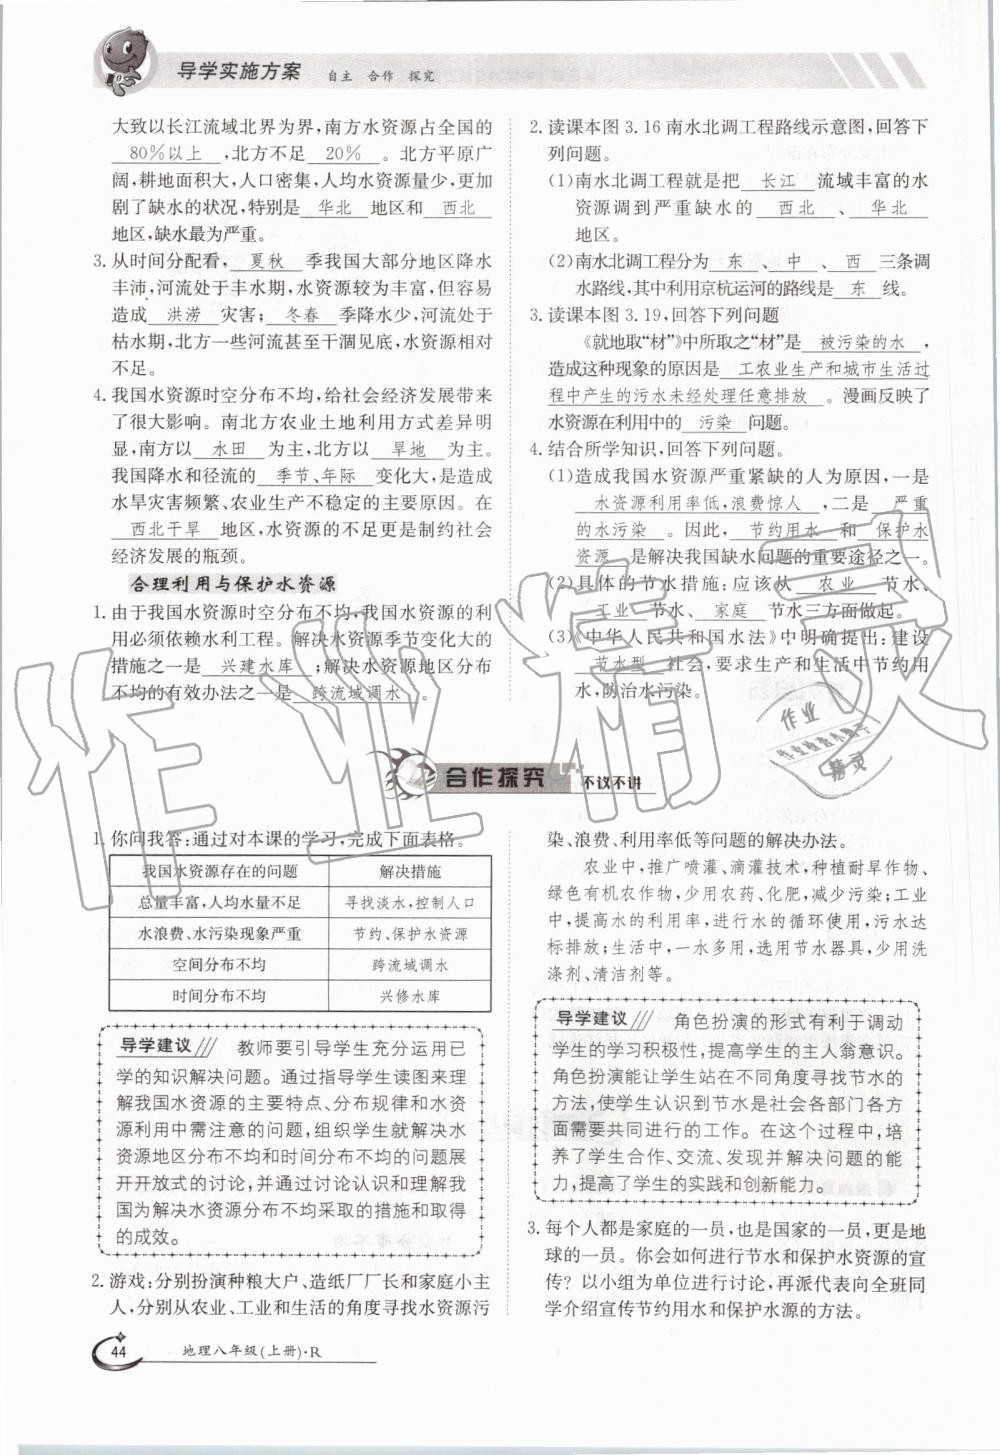 导学实施方案 自主 合作 探究
大致以长江流域北界为界,南方水资源占全国的
80%以上,北方不足 20%。北方平原广
阔,耕地面积大,人口密集,人均水资源量少,更加
剧了缺水的状况,特别是 华北 地区和 西北
地区,缺水最为严重。
3. 从时间分配看, 夏秋 季我国大部分地区降水
丰沛,河流处于丰水期,水资源较为丰富,但容易
造成 洪涝 灾害; 冬春 季降水少,河流处于
枯水期,北方一些河流甚至干涸见底,水资源相对
不足。
4. 我国水资源时空分布不均,给社会经济发展带来
了很大影响。南北方农业土地利用方式差异明
显,南方以 水田 为主,北方以 旱地 为主。
我国降水和径流的 季节、年际 变化大,是造成
水旱灾害频繁、农业生产不稳定的主要原因。在
西北干旱 地区,水资源的不足更是制约社会
经济发展的瓶颈。
合理利用与保护水资源
1. 由于我国水资源时空分布不均,我国水资源的利
用必须依赖水利工程。解决水资源季节变化大的
措施之一是 兴建水库 ;解决水资源地区分布
不均的有效办法之一是 跨流域调水 。
2. 读课本图 3.16 南水北调工程路线示意图,回答下
列问题。
(1)南水北调工程就是把 长江 流域丰富的水
资源调到严重缺水的 西北 、 华北
地区。
(2)南水北调工程分为 东 、 中 、 西 三条调
水路线,其中利用京杭运河的路线是 东 线。
3. 读课本图 3.19,回答下列问题
《就地取“材”》中所取之“材”是 被污染的水 ,
造成这种现象的原因是 工农业生产和城市生活过
程中产生的污水未经处理任意排放 。漫画反映了
水资源在利用中的 污染 问题。
4. 结合所学知识,回答下列问题。
(1)造成我国水资源严重紧缺的人为原因,一是
水资源利用率低,浪费惊人 ,二是 严重
的水污染 。因此, 节约用水 和 保护水
资源 是解决我国缺水问题的重要途径之一。
(2)具体的节水措施:应该从 农业 节水、
工业 节水、 家庭 节水三方面做起。
(3)《中华人民共和国水法》中明确提出:建设
节水型 社会,要求生产和生活中节约用
水,防治水污染。
作业精灵
作业
作业检查小帮手
精灵
合作探究 不议不讲
1. 你问我答:通过对本课的学习,完成下面表格。
我国水资源存在的问题 解决措施
总量丰富,人均水量不足 寻找淡水,控制人口
水浪费、水污染现象严重 节约、保护水资源
空间分布不均 跨流域调水
时间分布不均 兴修水库
导学建议 教师要引导学生充分运用已
学的知识解决问题。通过指导学生读图来理
解我国水资源的主要特点、分布规律和水资
源利用中需注意的问题,组织学生就解决水
资源地区分布不均和时间分布不均的问题展
开开放式的讨论,并通过讨论认识和理解我
国为解决水资源分布不均采取的措施和取得
的成效。
2. 游戏:分别扮演种粮大户、造纸厂厂长和家庭小主
人,分别从农业、工业和生活的角度寻找水资源污
染、浪费、利用率低等问题的解决办法。
农业中,推广喷灌、滴灌技术,种植耐旱作物、
绿色有机农作物,少用农药、化肥,减少污染;工业
中,提高水的利用率,进行水的循环使用,污水达
标排放;生活中,一水多用,选用节水器具,少用洗
涤剂、清洁剂等。
导学建议 角色扮演的形式有利于调动
学生的学习积极性,提高学生的主人翁意识。
角色扮演能让学生站在不同角度寻找节水的
方法,使学生认识到节水是社会各部门各方
面需要共同进行的工作。在这个过程中,培
养了学生合作、交流、发现并解决问题的能
力,提高了学生的实践和创新能力。
3. 每个人都是家庭的一员,也是国家的一员,更是地
球的一员。你会如何进行节水和保护水资源的宣
传?以小组为单位进行讨论,再派代表向全班同
学介绍宣传节约用水和保护水源的方法。
44 地理八年级(上册)·R